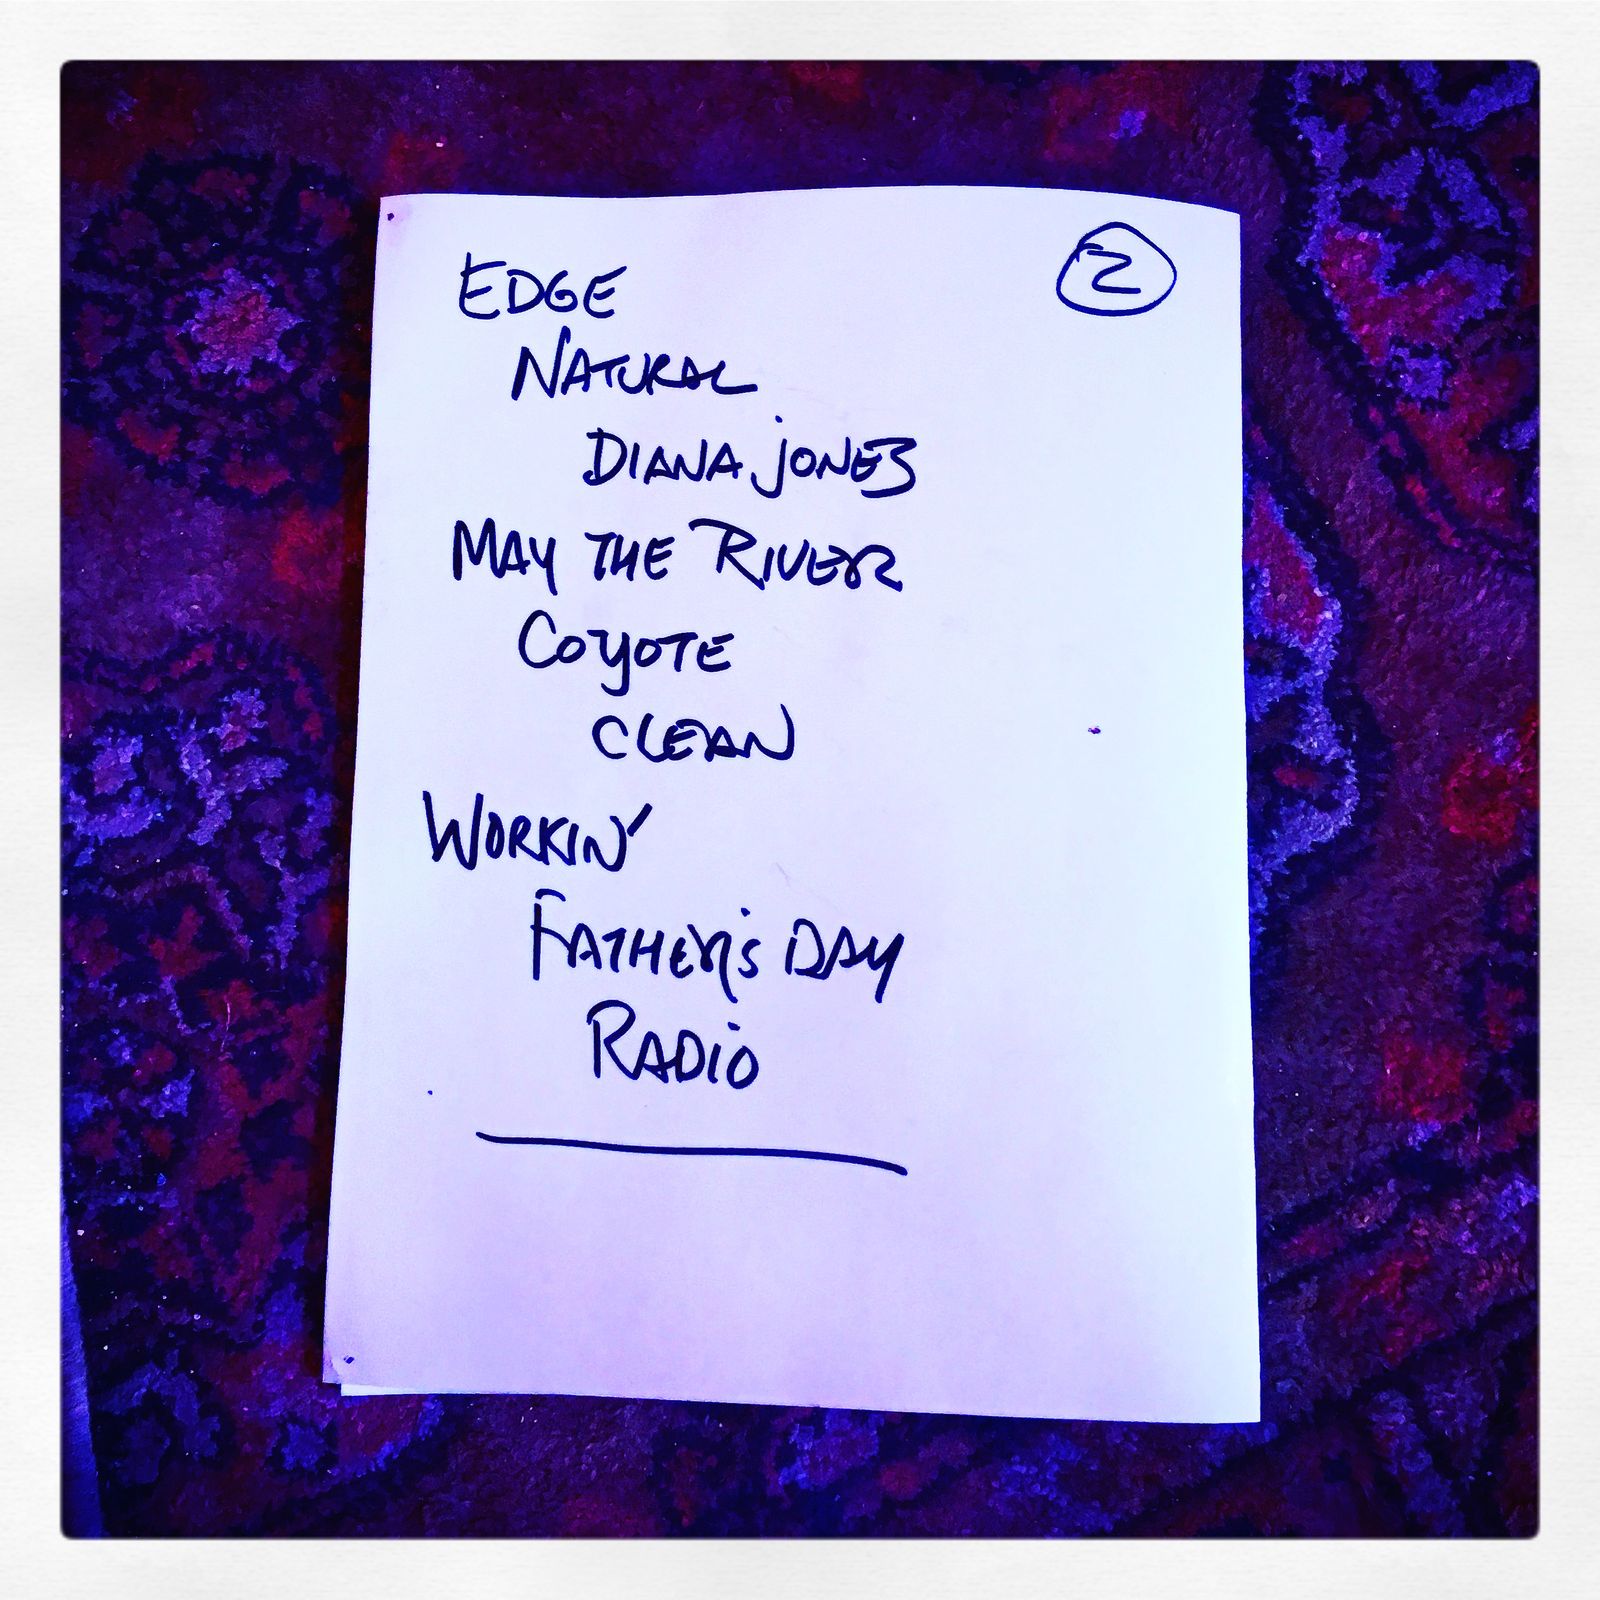 2
EDGE
NATURAL
DIANA JONES
MAY THE RIVER
COYOTE
CLEAN
WORKIN'
FATHER'S DAY
RADIO